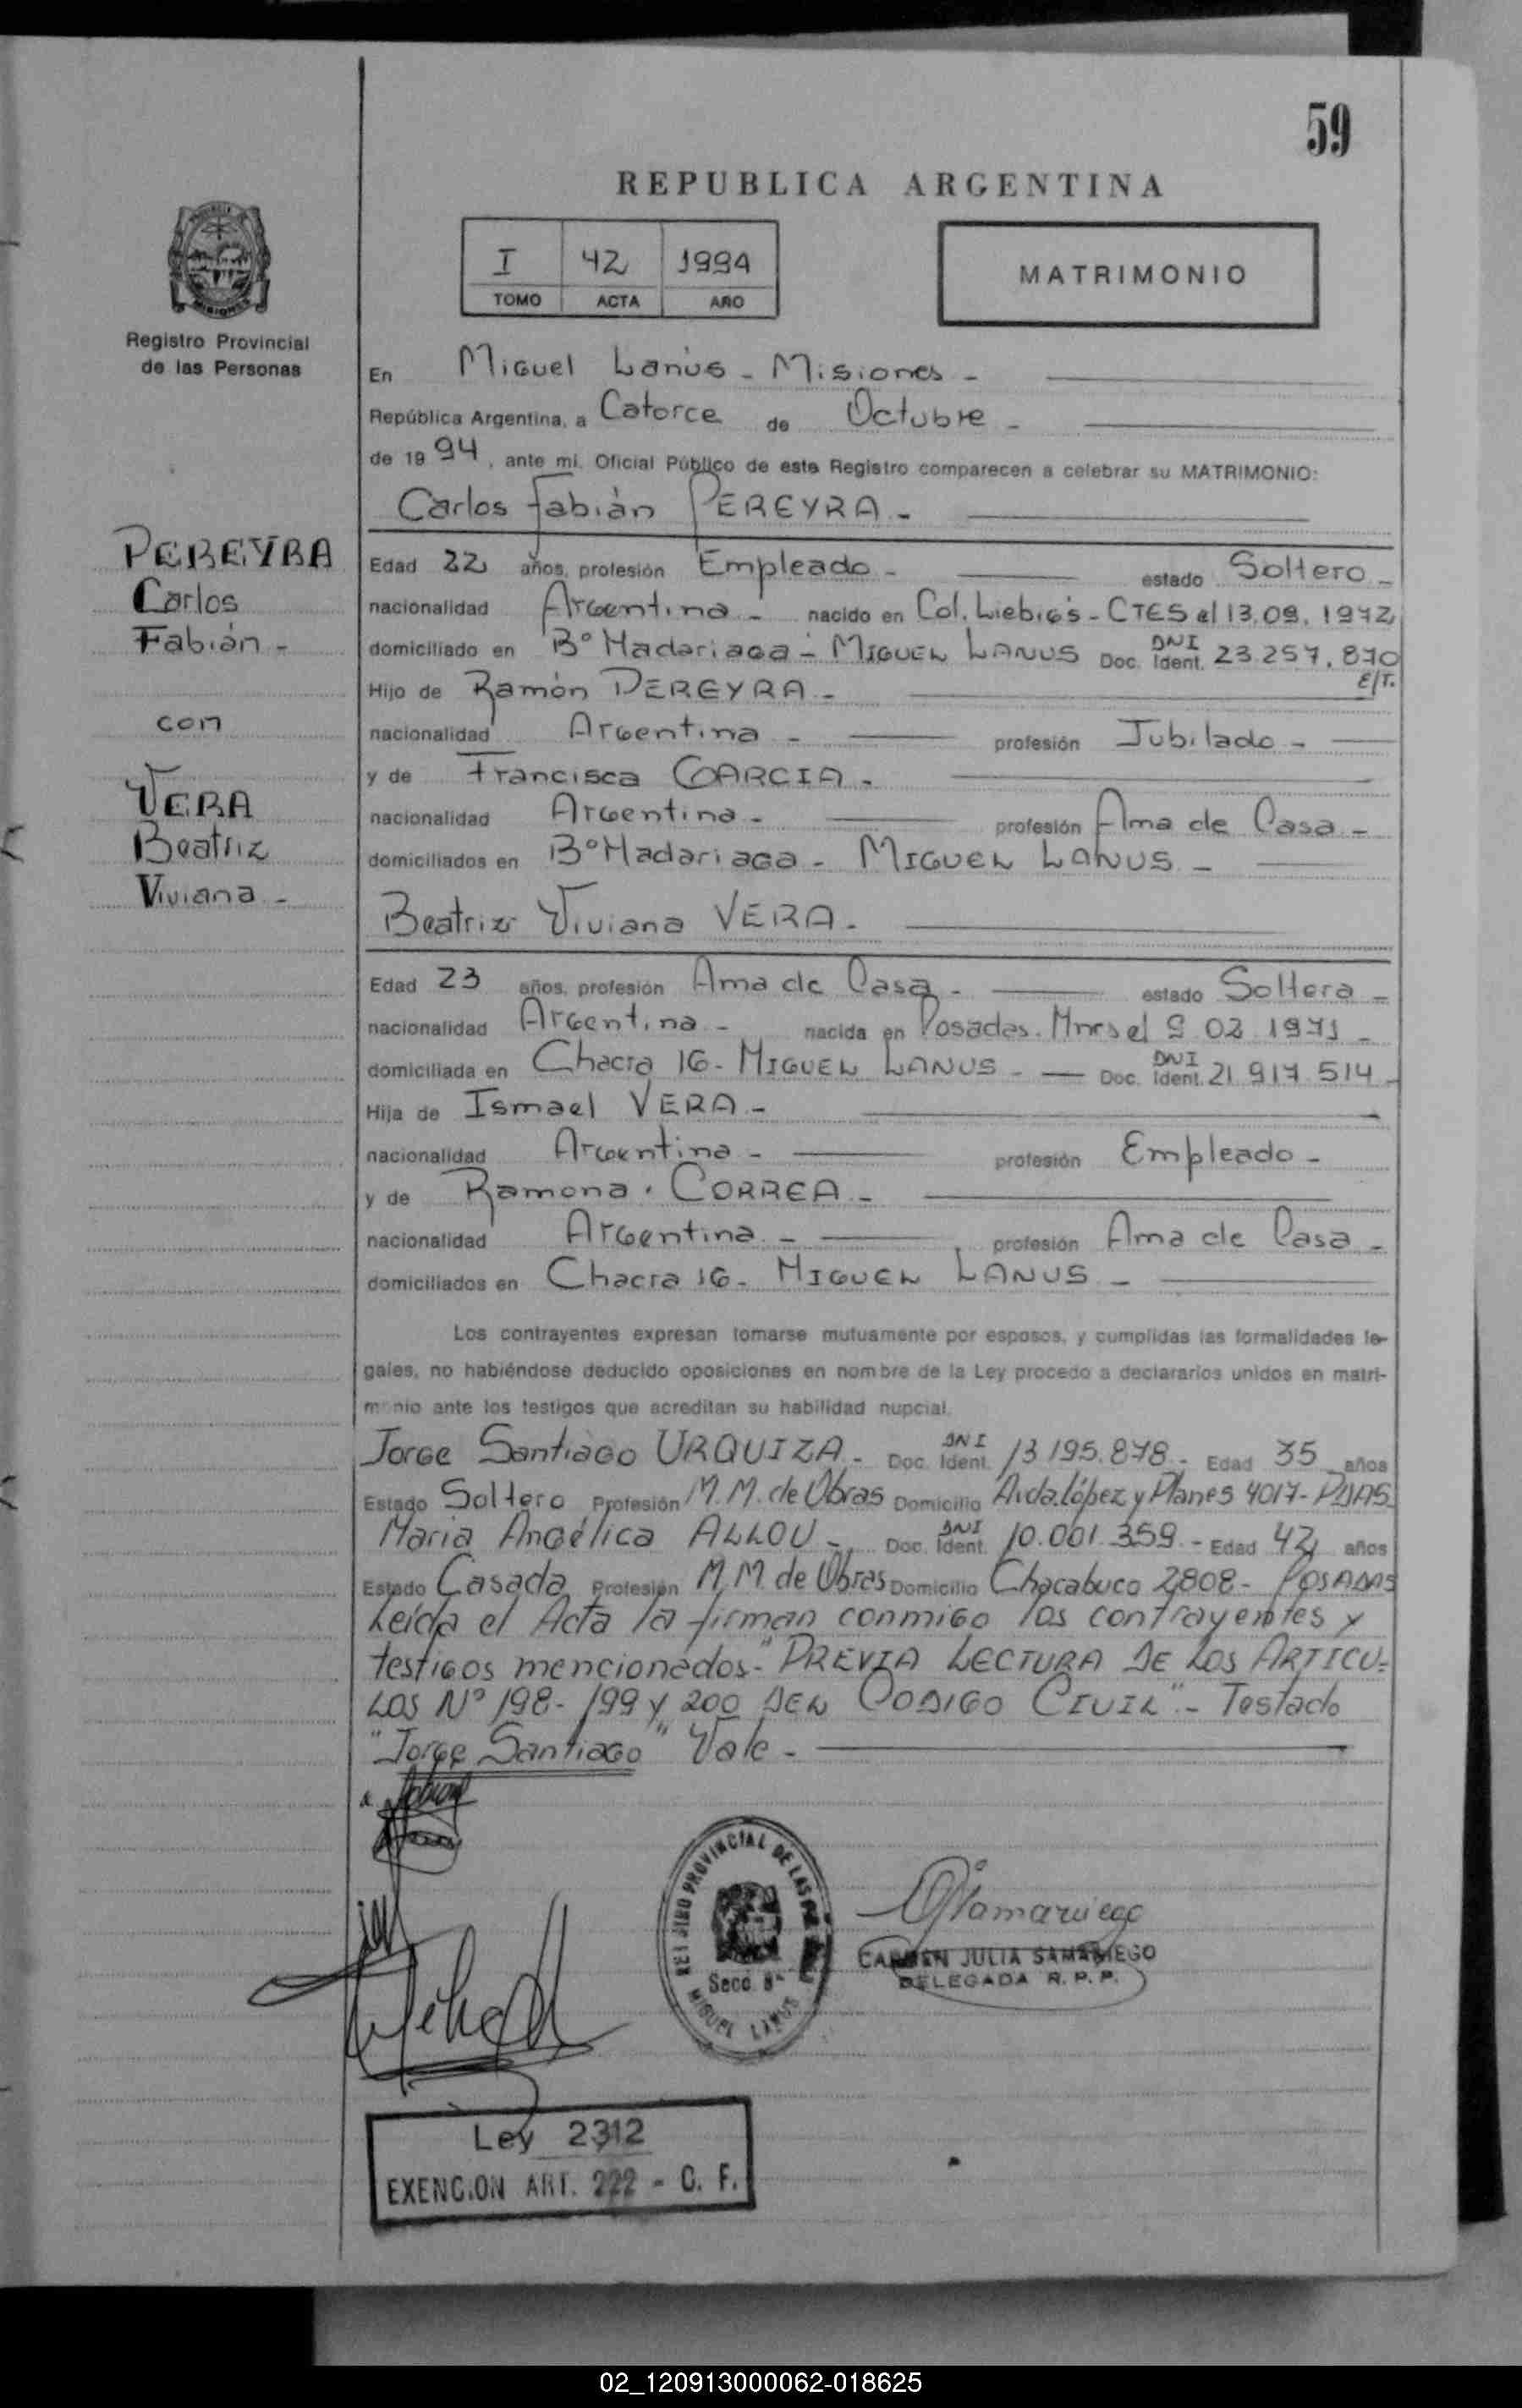 59
REPUBLICA ARGENTINA
I 42 1994
TOMO ACTA AÑO
MATRIMONIO
Registro Provincial
de las Personas
En Miguel Lanús - Misiones -
República Argentina, a Catorce de Octubre -
de 1994, ante mí, Oficial Público de este Registro comparecen a celebrar su MATRIMONIO:
Carlos Fabián PEREYRA -
PEREYRA
Carlos
Fabián -
con
VERA
Beatriz
Viviana -
Edad 22 años, profesión Empleado - estado Soltero -
nacionalidad Argentina - nacido en Col. Liebig's - CTES el 13.09.1972
domiciliado en B° Madariaga - MIGUEL LANUS Doc. Ident. DNI 23.257.870
E/T.
Hijo de Ramón PEREYRA -
nacionalidad Argentina - profesión Jubilado -
y de Francisca GARCIA -
nacionalidad Argentina - profesión Ama de Casa -
domiciliados en B° Madariaga - MIGUEL LANUS -
Beatriz Viviana VERA -
Edad 23 años, profesión Ama de Casa - estado Soltera -
nacionalidad Argentina - nacida en Posadas. Mnes el 9 02 1971 -
domiciliada en Chacra 16 - MIGUEL LANUS - Doc. Ident. DNI 21.917.514 -
Hija de Ismael VERA -
nacionalidad Argentina - profesión Empleado -
y de Ramona CORREA -
nacionalidad Argentina - profesión Ama de Casa -
domiciliados en Chacra 16 - MIGUEL LANUS -
Los contrayentes expresan tomarse mutuamente por esposos, y cumplidas las formalidades le-
gales, no habiéndose deducido oposiciones en nombre de la Ley procedo a declararlos unidos en matri-
monio ante los testigos que acreditan su habilidad nupcial.
Jorge Santiago URQUIZA - Doc. Ident. DNI 13.195.878 - Edad 35 años
Estado Soltero Profesión M.M. de Obras Domicilio Avda. López y Planes 4017 - PDAS
Maria Angélica ALLOU - Doc. Ident. DNI 10.001.359 - Edad 42 años
Estado Casada Profesión M.M. de Obras Domicilio Chacabuco 2808 - POSADAS
Leída el Acta la firman conmigo los contrayentes y
testigos mencionados - "PREVIA LECTURA DE LOS ARTICU-
LOS N° 198 - 199 y 200 DEL CODIGO CIVIL" - Testado
"Jorge Santiago" Vale -
REGISTRO PROVINCIAL DE LAS
Secc. 8ª
MIGUEL LANUS
CARMEN JULIA SAMANIEGO
DELEGADA R. P. P.
Ley 2312
EXENCION ART. 222 - C. F.
02_120913000062-018625